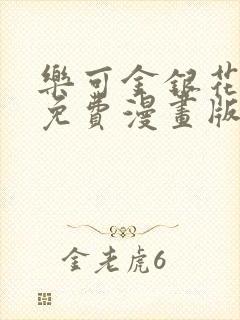 樂可金銀花
免費漫畫版
金老虎6